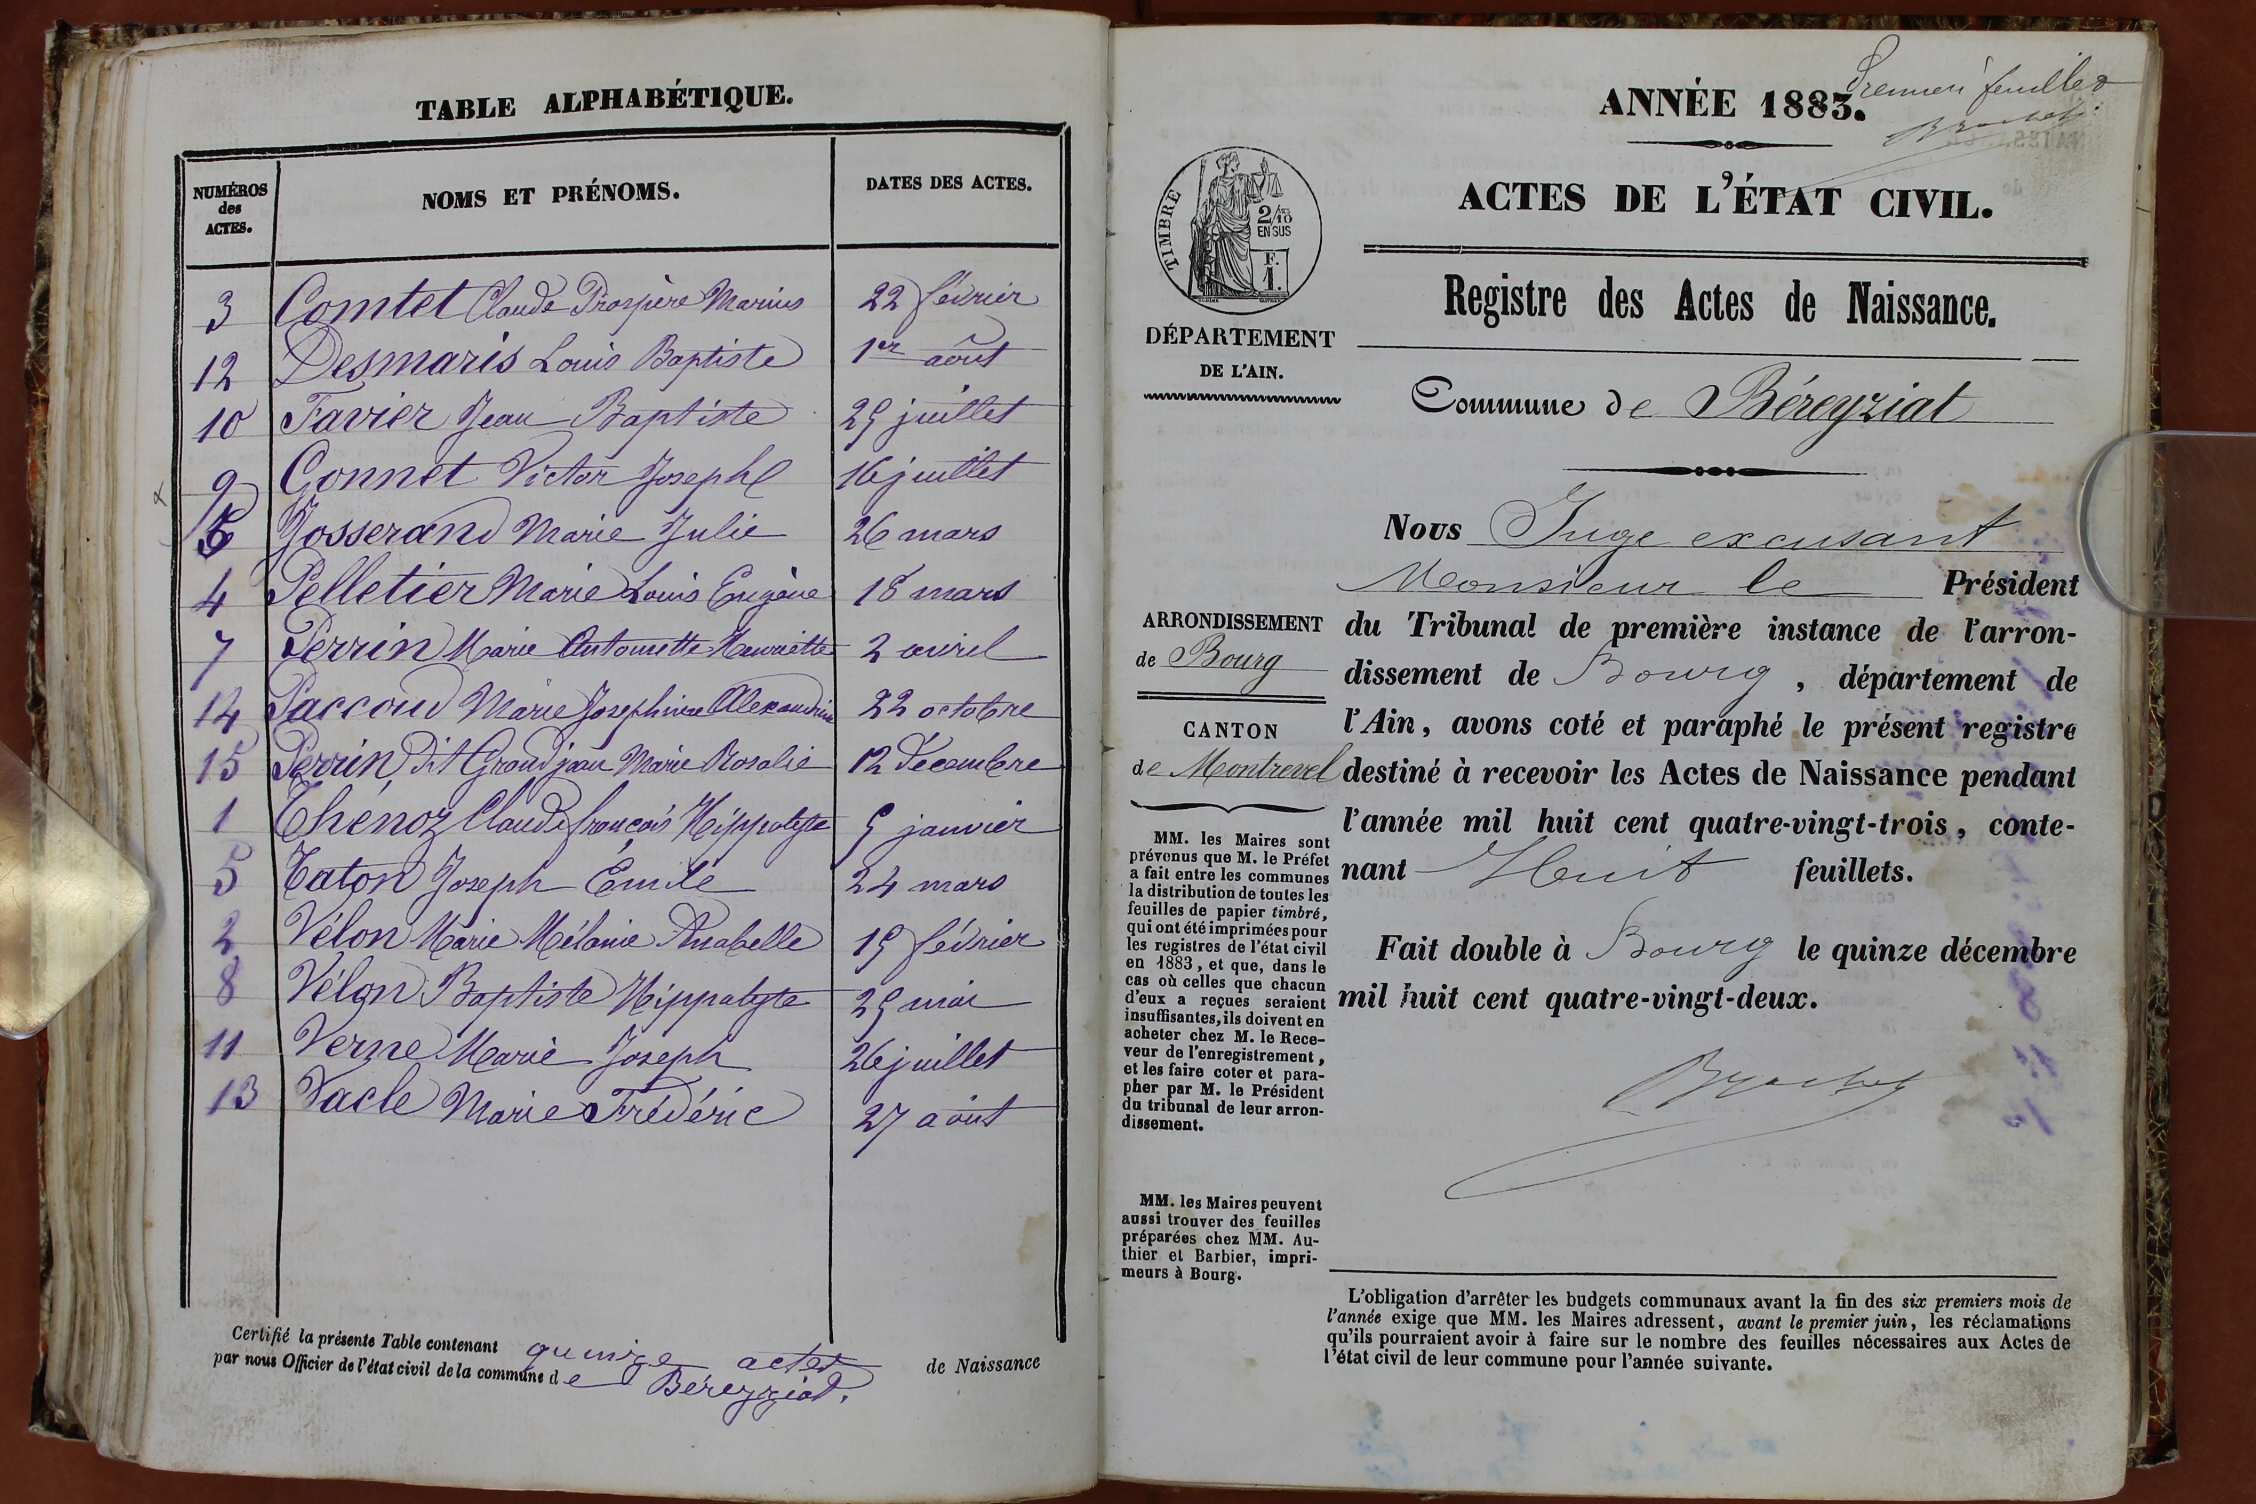 TABLE ALPHABÉTIQUE.
NUMÉROS
des
ACTES.
NOMS ET PRÉNOMS.
DATES DES ACTES.
3 Comtet Claude Prospère Marius 22 février
12 Desmaris Louis Baptiste 1er août
10 Favier Jean Baptiste 25 juillet
9 Gonnet Victor Joseph 16 juillet
6 Josserand Marie Julie 26 mars
4 Pelletier Marie Louis Eugène 18 mars
7 Perrin Marie Antoinette Henriette 2 avril
14 Paccoud Marie Josephine Alexandrine 22 octobre
15 Perrin dit Grandjean Marie Rosalie 12 décembre
1 Thénoz Claude françois Hippolyte 5 janvier
5 Taton Joseph Émile 24 mars
2 Vélon Marie Mélanie Anabelle 15 février
8 Vélon Baptiste Hippolyte 25 mai
11 Verne Marie Joseph 26 juillet
13 Vacle Marie Frédéric 27 août
Certifié la présente Table contenant quinze actes de Naissance
par nous Officier de l'état civil de la commune de Béreyziat.
Premier feuillet
ANNÉE 1883.
ACTES DE L'ÉTAT CIVIL.
TIMBRE
2/10
EN SUS
F.
1.
Registre des Actes de Naissance.
DÉPARTEMENT
DE L'AIN.
Commune de Béreyziat
Nous Juge excusant
Monsieur le Président
du Tribunal de première instance de l'arron-
dissement de Bourg, département de
l'Ain, avons coté et paraphé le présent registre
destiné à recevoir les Actes de Naissance pendant
l'année mil huit cent quatre-vingt-trois, conte-
nant Huit feuillets.
Fait double à Bourg le quinze décembre
mil huit cent quatre-vingt-deux.
ARRONDISSEMENT
de Bourg
CANTON
de Montrevel
MM. les Maires sont
prévenus que M. le Préfet
a fait entre les communes
la distribution de toutes les
feuilles de papier timbré,
qui ont été imprimées pour
les registres de l'état civil
en 1883, et que, dans le
cas où celles que chacun
d'eux a reçues seraient
insuffisantes, ils doivent en
acheter chez M. le Rece-
veur de l'enregistrement,
et les faire coter et para-
pher par M. le Président
du tribunal de leur arron-
dissement.
MM. les Maires peuvent
aussi trouver des feuilles
préparées chez MM. Au-
thier et Barbier, impri-
meurs à Bourg.
L'obligation d'arrêter les budgets communaux avant la fin des six premiers mois de
l'année exige que MM. les Maires adressent, avant le premier juin, les réclamations
qu'ils pourraient avoir à faire sur le nombre des feuilles nécessaires aux Actes de
l'état civil de leur commune pour l'année suivante.